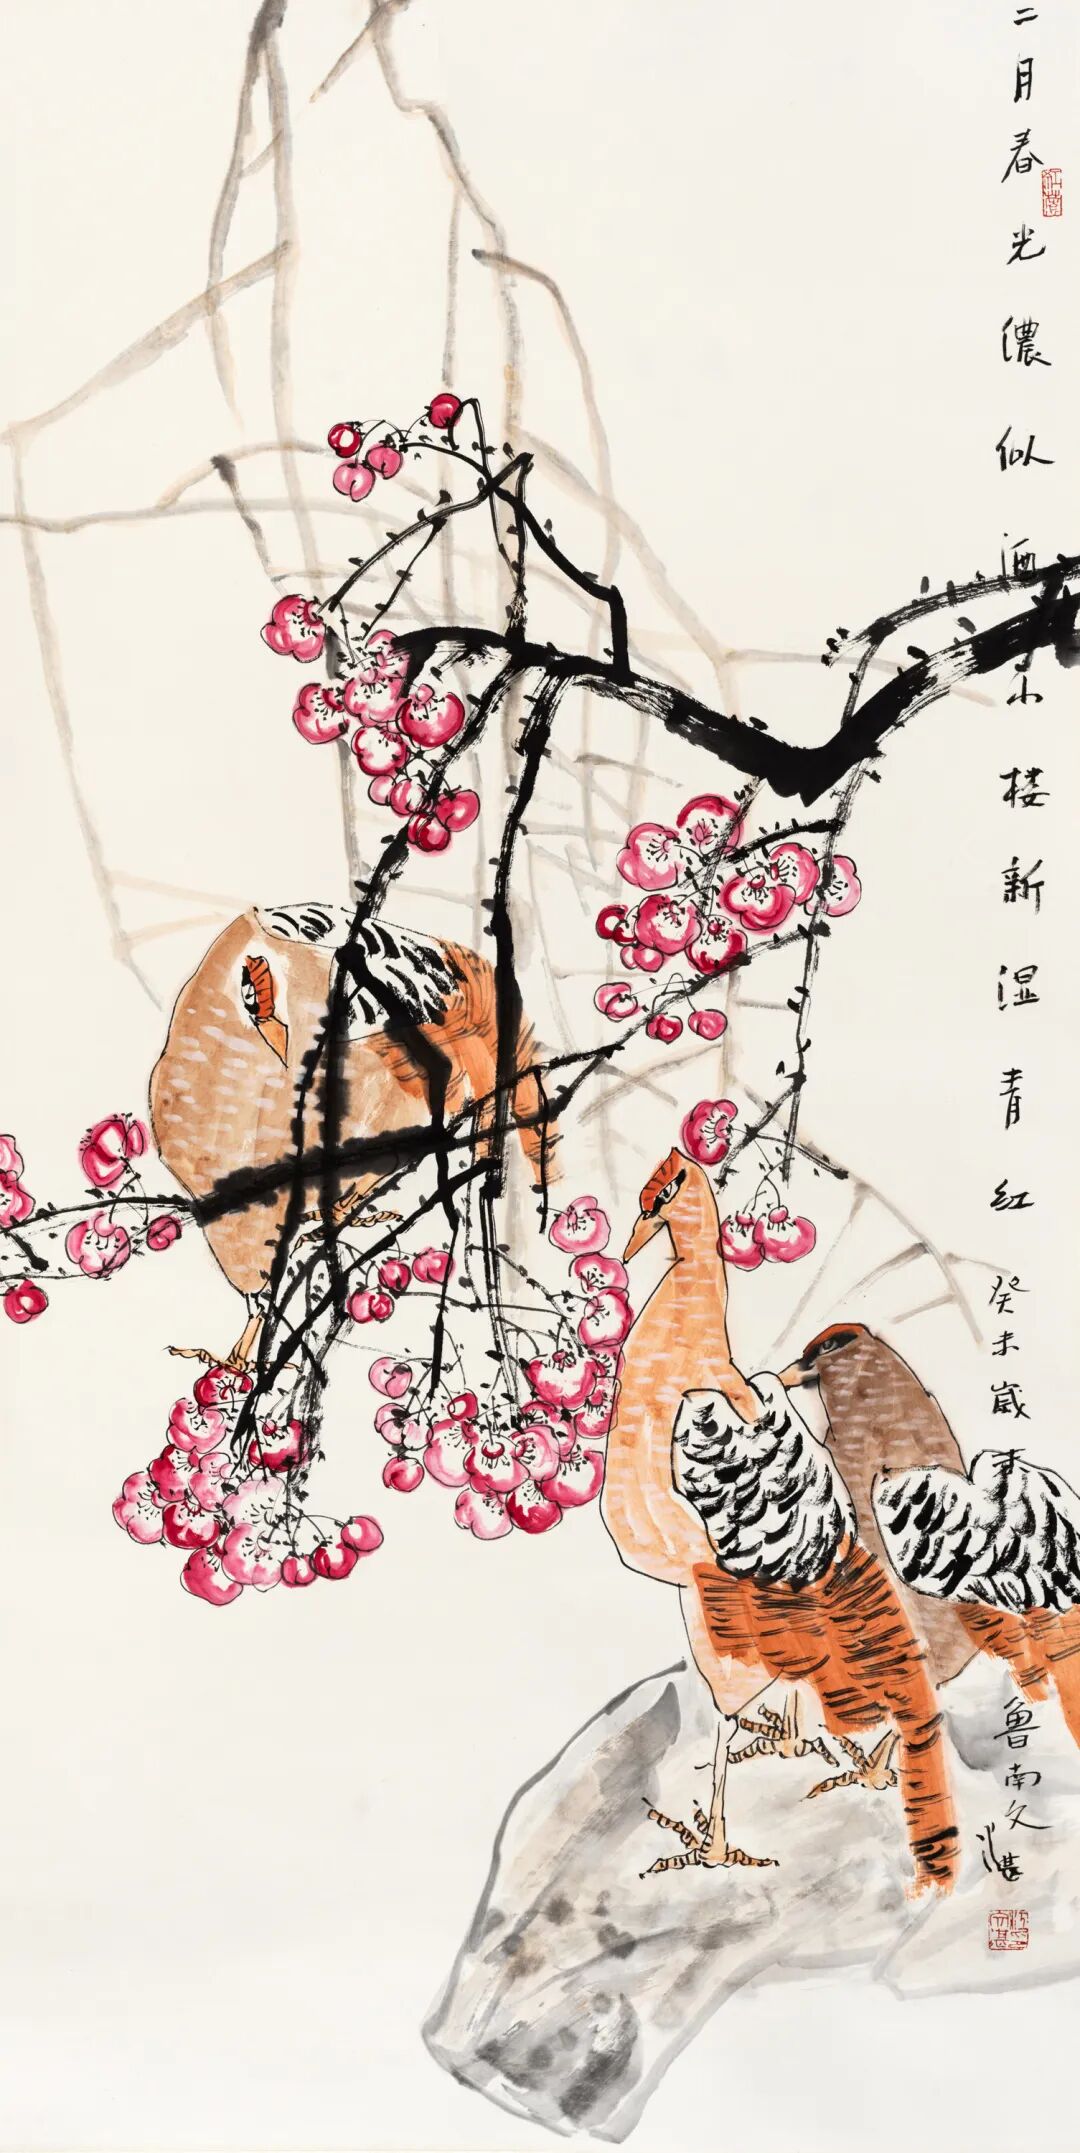 二月春光濃似酒小楼新湿青红癸未歲末魯南文湛